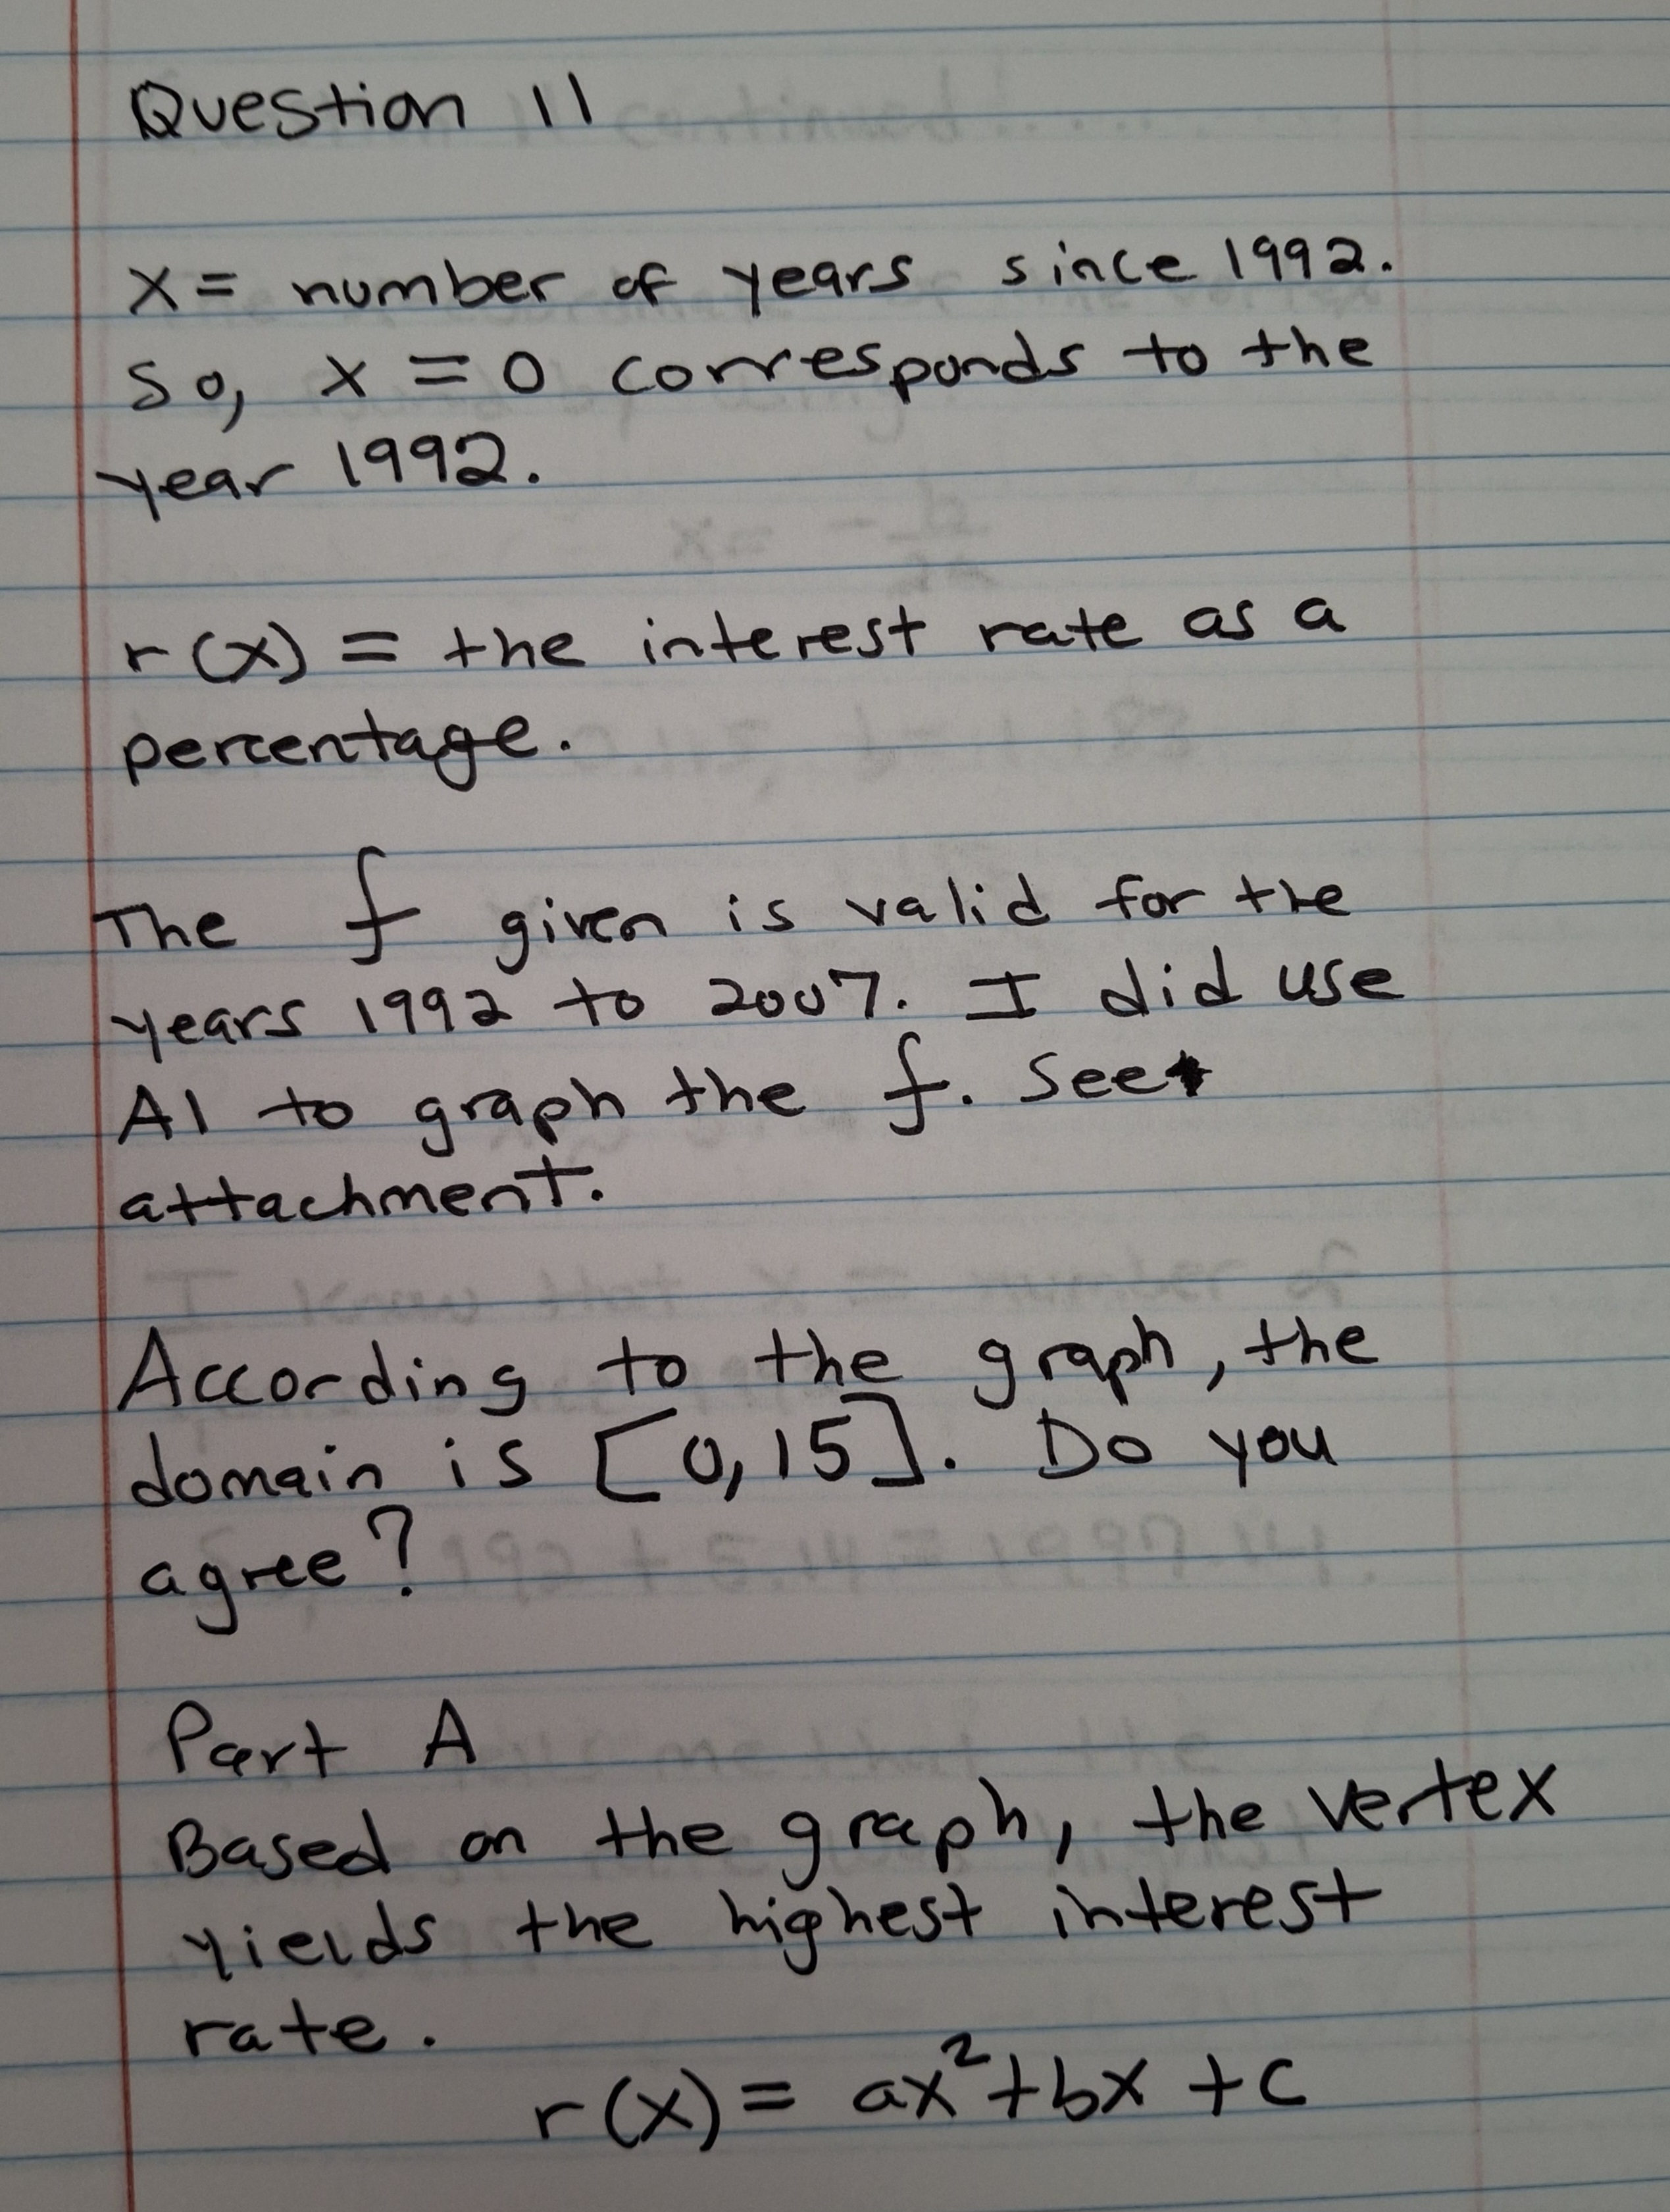 Question 11
x = number of years since 1992.
So, x = 0 corresponds to the
year 1992.
r(x) = the interest rate as a
percentage.
The f given is valid for the
years 1992 to 2007. I did use
AI to graph the f. See
attachment.
According to the graph, the
domain is [0,15]. Do you
agree?
Part A
Based on the graph, the vertex
yields the highest interest
rate.
r(x) = ax²+bx+c